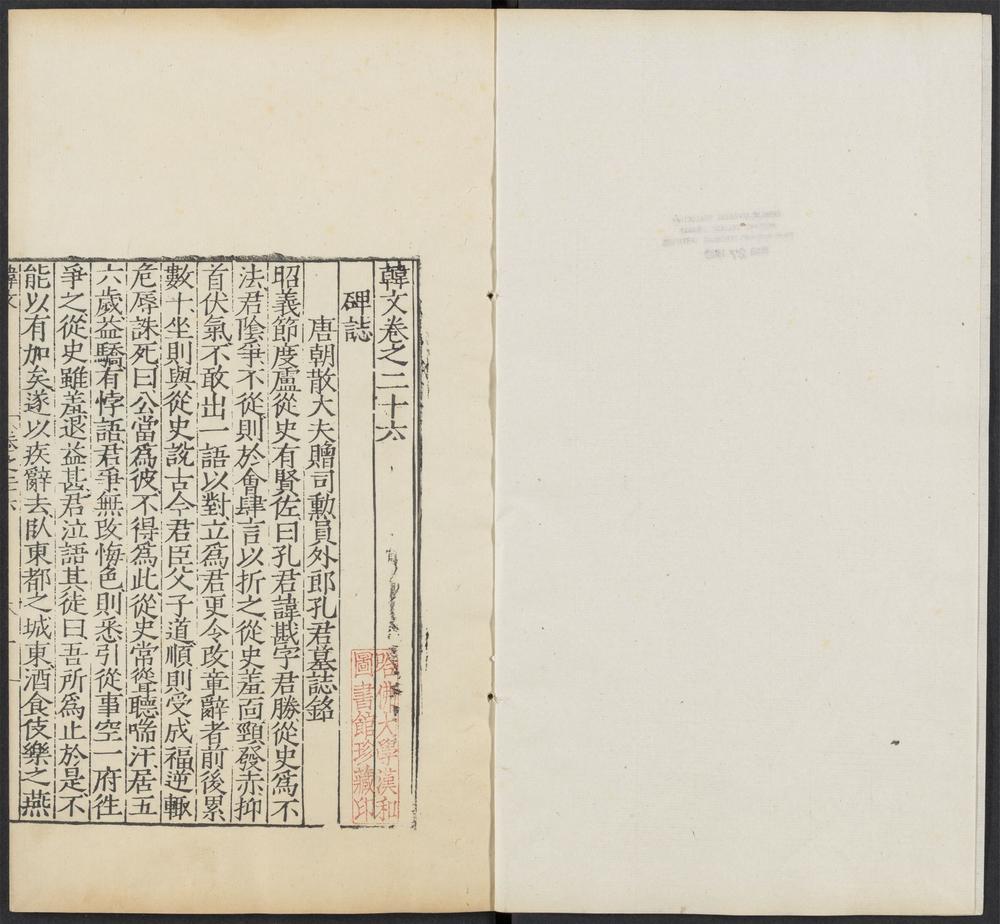 韓文卷之二十六
碑誌
唐朝散大夫贈司勳員外郎孔君墓誌銘
昭義節度盧從史有賢佐曰孔君諱戡字君勝從史爲不
法君陰爭不從則於會肆言以折之從史羞面頸發赤抑
首伏氣不敢出一語以對立爲君更令改章辭者前後累
數十坐則與從史說古今君臣父子道順則受成福逆輒
危辱誅死曰公當爲彼不得爲此從史常聳聽喘汗居五
六歲益驕有悖語君爭無改悔色則悉引從事空一府徃
爭之從史雖羞退益甚君泣語其徒曰吾所爲止於是不
能以有加矣遂以疾辭去臥東都之城東酒食伎樂之燕
哈佛大學漢和
圖書館珍藏印